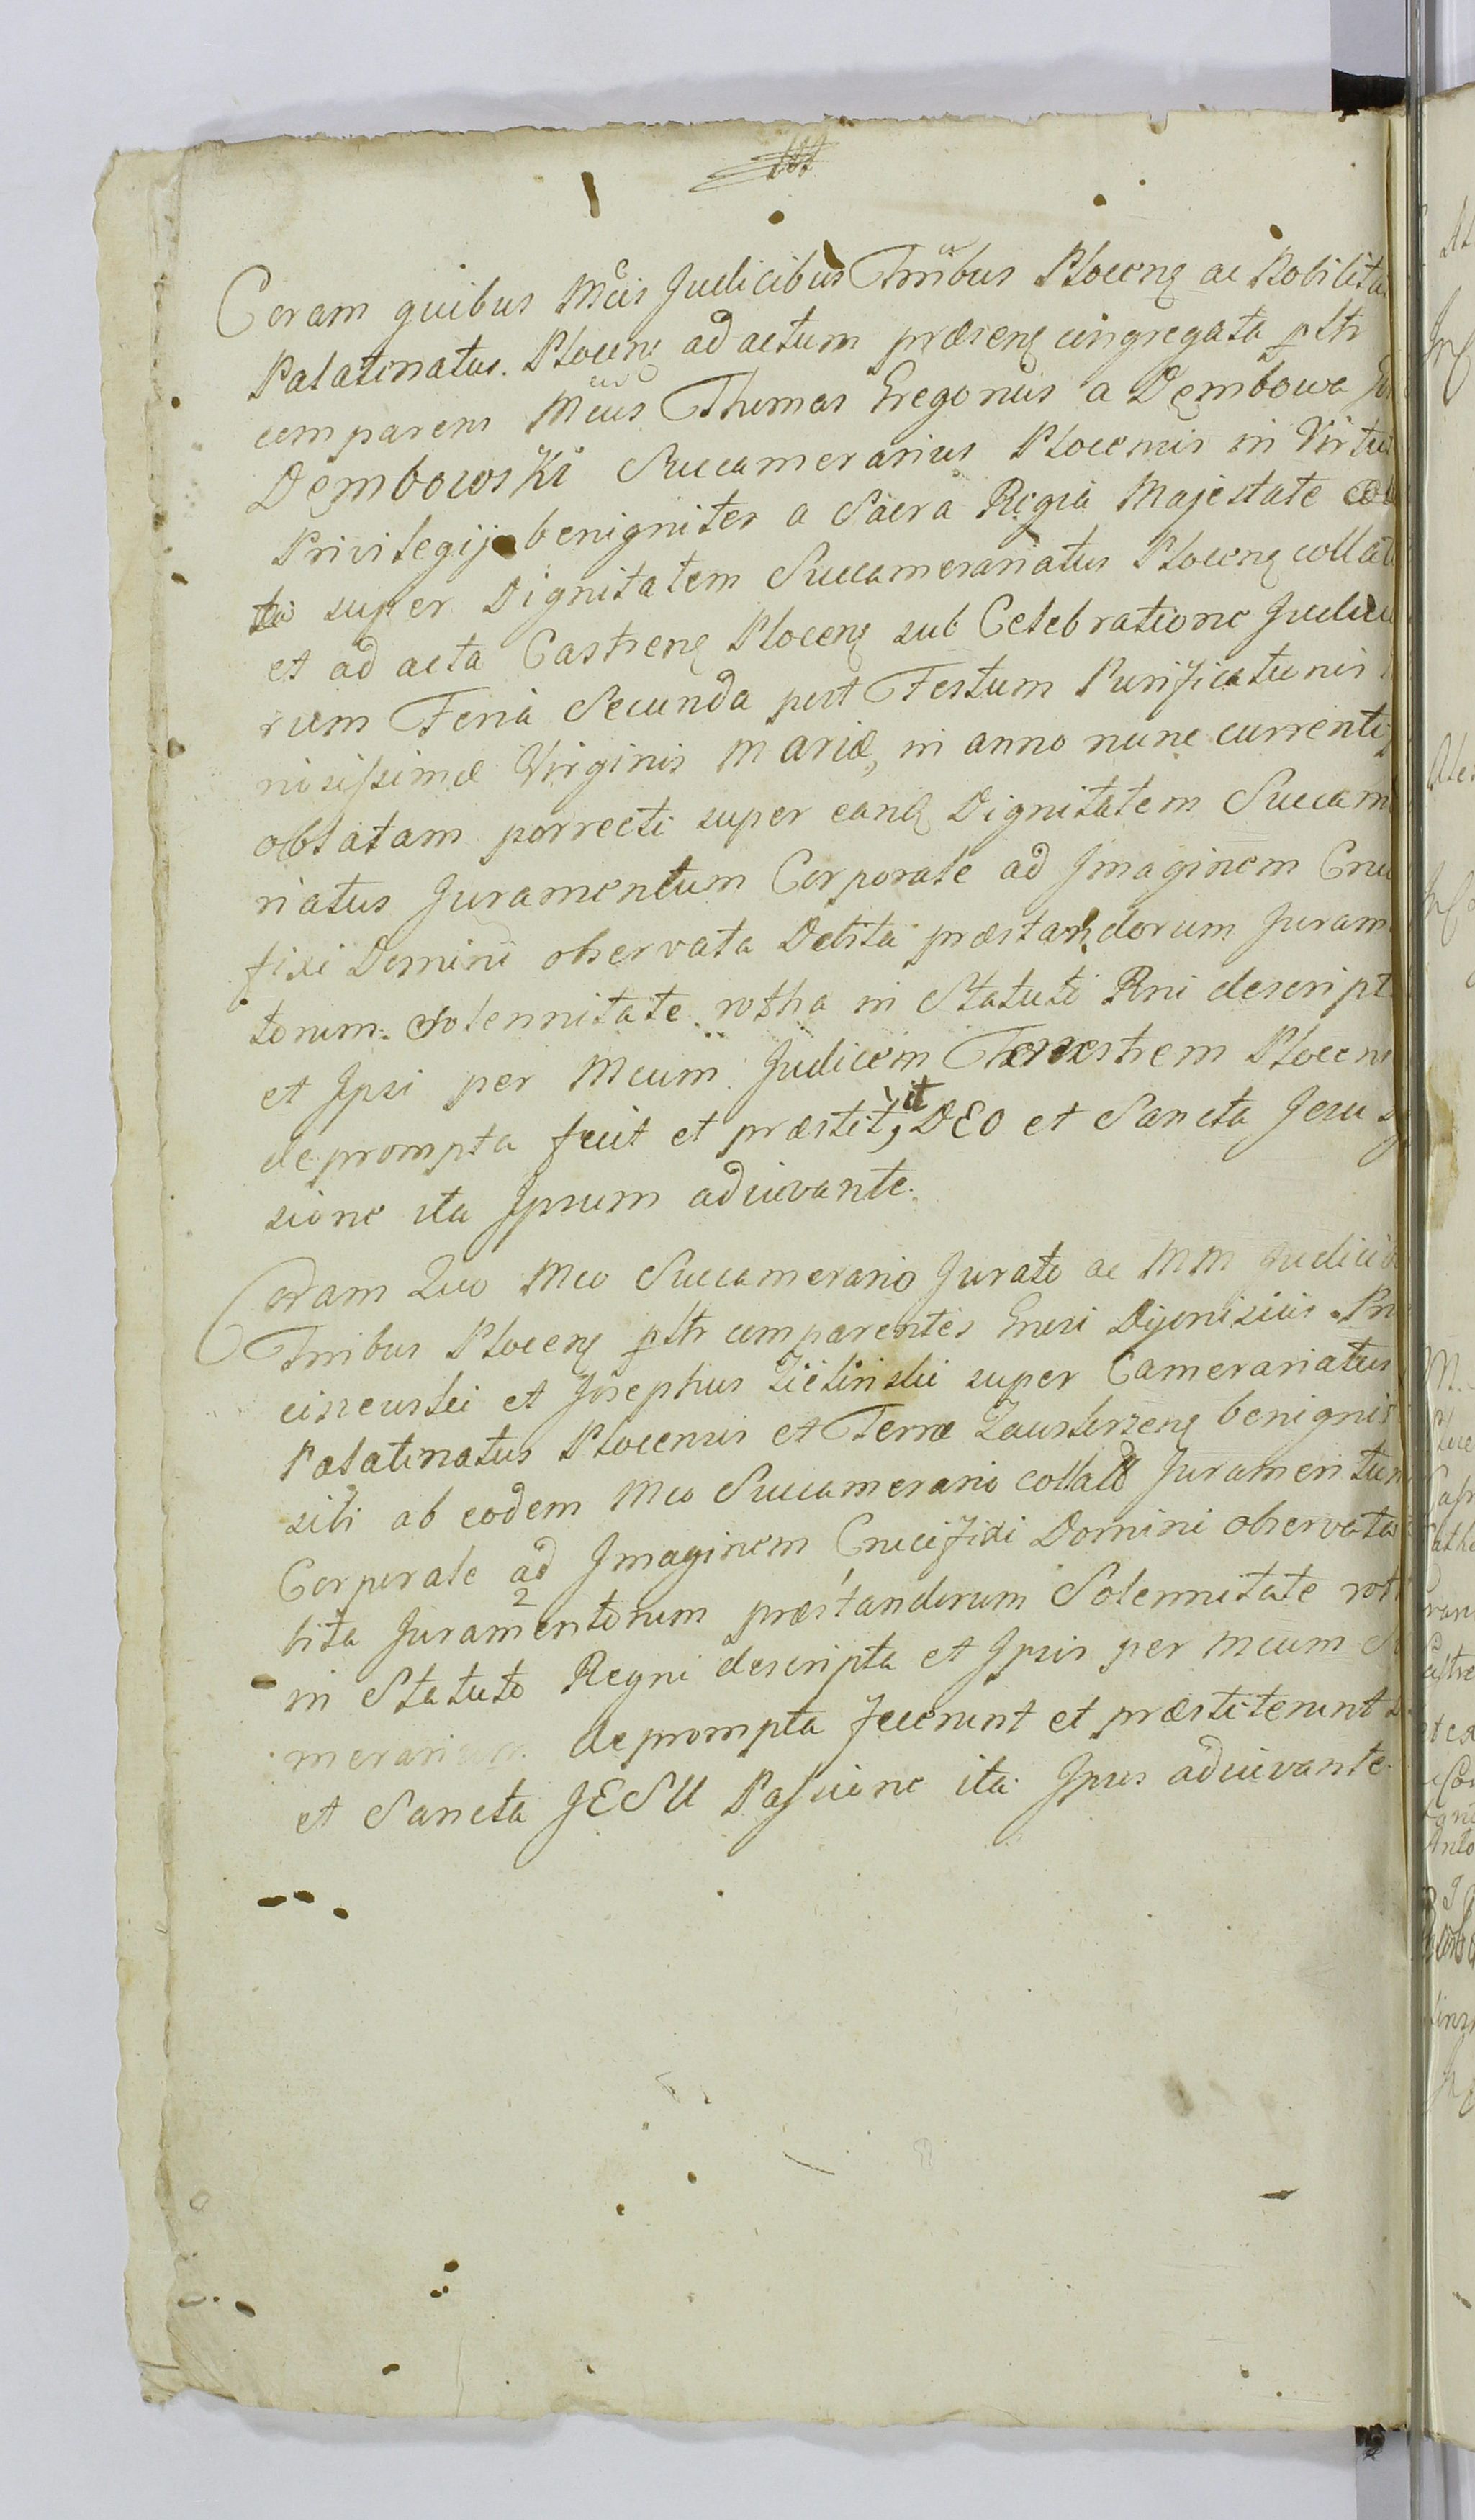 Coram quibus Mcis Judicibus Trribus Plocen ac Nobilita
Palatinatus Plocen ad actum præsen congregata plr
comparens Mcus Thomas Gregorius a Dembowa
Dembowski Succamerarius Plocensis in Virtu
Privilegij benigniter a Sacra Regia Majestate
super Dignitatem Succamerariatus Plocen colla
et ad acta Castren Plocen sub Celebratione Judicio
rum Feria Secunda post Festum Purificationis
Virginis Mariæ, in anno nunc currenti
oblatam porrecti super eand Dignitatem Succam
riatus Juramentum Corporale ad Imaginem Cru
fixi Domini observata Debita præstandorum Juram
torum Solennitate rotha in Statuti Rni descript
et Ipsi per Mcum Judicem Terrestrem Plocens
deprompta fecit et præstitit, DEO et Sancta Jesu
sione ita Ipsum adiuvante.
Coram Quo Mco Succamerario Jurato ac MM Judici
Trribus Plocen plr comparentes Gnrsi Dijonisius Pn
ciszewski et Josephus Zielinski super Camerariatus
Palatinatus Plocensis et Terræ Zawskrzen benignis
sibi ab eodem Mco Succamerario collato Juramentum
Corporale ad Imaginem Crucifixi Domini observata
bita Juramentorum præstandorum Solennitate rot
in Statuto Regni descripta et Ipsis per Mcum S
merarium deprompta fecerunt et præstiterunt
et Sancta JESU Passione ita Ipsis adiuvante.